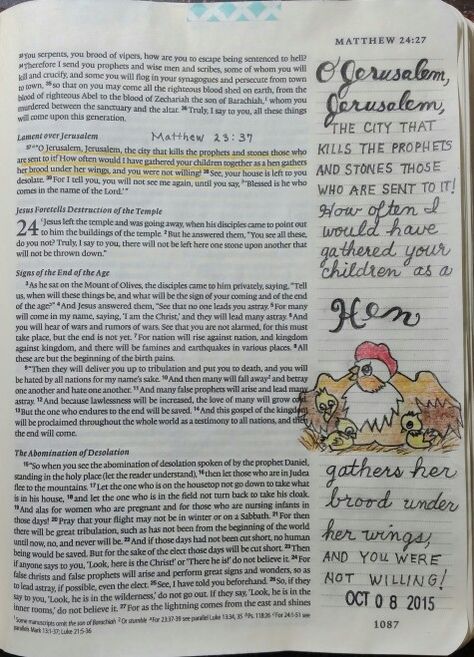 MATTHEW 24:27
33 You serpents, you brood of vipers, how are you to escape being sentenced to hell?
34 Therefore I send you prophets and wise men and scribes, some of whom you will
kill and crucify, and some you will flog in your synagogues and persecute from town
to town, 35 so that on you may come all the righteous blood shed on earth, from the
blood of righteous Abel to the blood of Zechariah the son of Barachiah,1 whom you
murdered between the sanctuary and the altar. 36 Truly, I say to you, all these things
will come upon this generation.
Lament over Jerusalem Matthew 23:37
37 "O Jerusalem, Jerusalem, the city that kills the prophets and stones those who
are sent to it! How often would I have gathered your children together as a hen gathers
her brood under her wings, and you were not willing! 38 See, your house is left to you
desolate. 39 For I tell you, you will not see me again, until you say, 'Blessed is he who
comes in the name of the Lord.'"
Jesus Foretells Destruction of the Temple
24 1 Jesus left the temple and was going away, when his disciples came to point out
to him the buildings of the temple. 2 But he answered them, "You see all these,
do you not? Truly, I say to you, there will not be left here one stone upon another
that will not be thrown down."
Signs of the End of the Age
3 As he sat on the Mount of Olives, the disciples came to him privately, saying, "Tell
us, when will these things be, and what will be the sign of your coming and of the end
of the age?" 4 And Jesus answered them, "See that no one leads you astray. 5 For many
will come in my name, saying, 'I am the Christ,' and they will lead many astray. 6 And
you will hear of wars and rumors of wars. See that you are not alarmed, for this must
take place, but the end is not yet. 7 For nation will rise against nation, and kingdom
against kingdom, and there will be famines and earthquakes in various places. 8 All
these are but the beginning of the birth pains.
9 "Then they will deliver you up to tribulation and put you to death, and you will
be hated by all nations for my name's sake. 10 And then many will fall away2 and betray
one another and hate one another. 11 And many false prophets will arise and lead many
astray. 12 And because lawlessness will be increased, the love of many will grow cold.
13 But the one who endures to the end will be saved. 14 And this gospel of the kingdom
will be proclaimed throughout the whole world as a testimony to all nations, and then
the end will come.
The Abomination of Desolation
15 "So when you see the abomination of desolation spoken of by the prophet Daniel,
standing in the holy place (let the reader understand), 16 then let those who are in Judea
flee to the mountains. 17 Let the one who is on the housetop not go down to take what
is in his house, 18 and let the one who is in the field not turn back to take his cloak.
19 And alas for women who are pregnant and for those who are nursing infants in
those days! 20 Pray that your flight may not be in winter or on a Sabbath. 21 For then
there will be great tribulation, such as has not been from the beginning of the world
until now, no, and never will be. 22 And if those days had not been cut short, no human
being would be saved. But for the sake of the elect those days will be cut short. 23 Then
if anyone says to you, 'Look, here is the Christ!' or 'There he is!' do not believe it. 24 For
false christs and false prophets will arise and perform great signs and wonders, so as
to lead astray, if possible, even the elect. 25 See, I have told you beforehand. 26 So, if they
say to you, 'Look, he is in the wilderness,' do not go out. If they say, 'Look, he is in the
inner rooms,' do not believe it. 27 For as the lightning comes from the east and shines
1 Some manuscripts omit the son of Barachiah 2 Or stumble
O Jerusalem,
Jerusalem,
THE CITY THAT
KILLS THE PROPHETS
AND STONES THOSE
WHO ARE SENT TO IT!
How often I
would have
gathered your
children as a
Hen
gathers her
brood under
her wings,
AND YOU WERE
NOT WILLING!
OCT 08 2015
1087